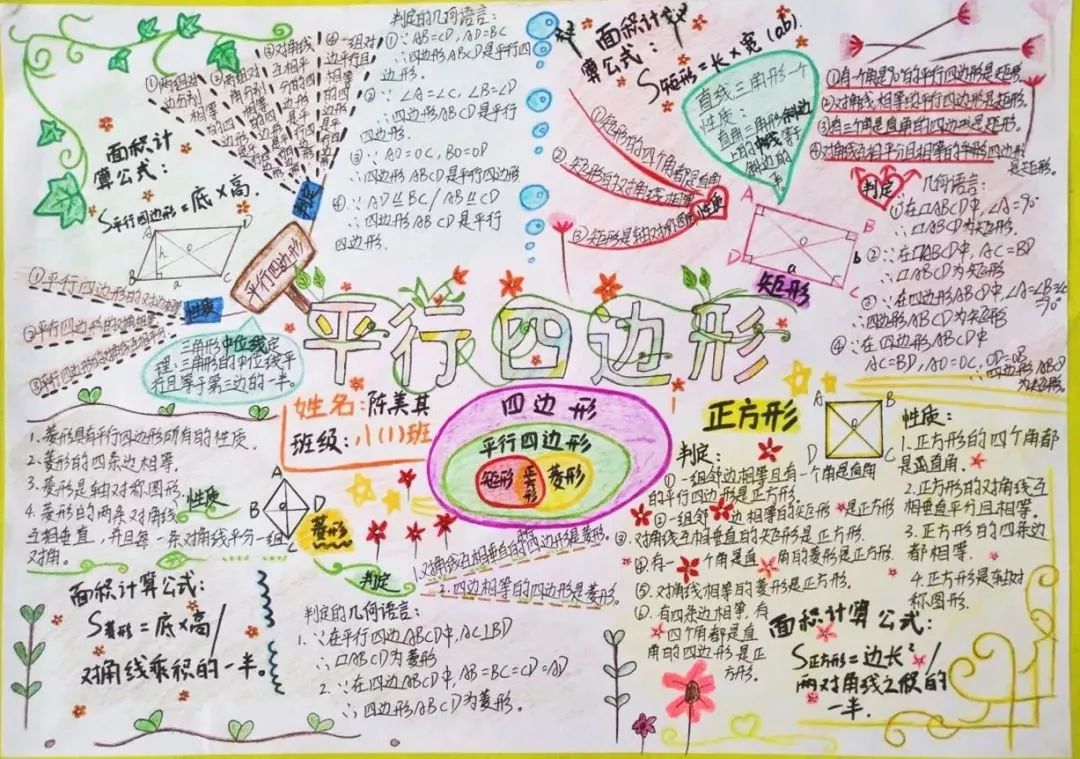 平行四边形
姓名:陈美其
班级:八(1)班
四边形
平行四边形
矩形
正方形
菱形
平行四边形
判定
①两组对边分别相等的四
②两组对角分别相等的四
③对角线互相平分的四边形是平行
④一组对边平行且相等的四边形是平行
面积计算公式:
S平行四边形=底×高.
A
D
h
o
B
C
性质
①平行四边形的对边
②平行四边形的对角相等
③平行四边形的对角线互相平分
三角形中位线定
理:三角形的中位线平
行且等于第三边的一半。
判定的几何语言:
①∵AB=CD,AD=BC
∴四边形ABCD是平行四
边形.
②∵∠A=∠C,∠B=∠D
∴四边形ABCD是平行
四边形.
③∵AO=OC,BO=OD
∴四边形ABCD是平行四边形
④∵AD⫽BC/AB⫽CD
∴四边形ABCD是平行
四边形.
面积计
算公式:
S矩形=长×宽(ab).
直线三角形一个
性质:
直角三角形斜边
上的中线等于
斜边的
一半
①矩形的四个角都是直角
②矩形的对角线相等
③矩形是轴对称图形
性质
A
B
D
C
o
a
b
矩形
①有一个角是90°的平行四边形是矩形.
②对角线相等的平行四边形是矩形.
③有三个角是直角的四边形是矩形.
④对角线互相平分且相等的四边形
是矩形.
判定
几何语言:
①在□ABCD中,∠A=90°
∴□ABCD为矩形.
②∵在□ABCD中,AC=BD
∴□ABCD为矩形
③∵在四边形ABCD中,∠A=∠B=∠C
=90°
∴四边形ABCD为矩形
④∵在四边形ABCD中
AC=BD,AO=OC,OD=OB
∴四边形ABCD
为矩形.
1.菱形具有平行四边形所有的性质.
2.菱形的四条边相等.
3.菱形是轴对称图形.
4.菱形的两条对角线
互相垂直,并且每一条对角线平分一组
对角.
性质
A
B
D
C
菱形
判定
1.对角线互相垂直的四边形是菱形.
2.四边相等的四边形是菱形。
面积计算公式:
S菱形=底×高/
对角线乘积的一半。
判定的几何语言:
1.∵在平行四边ABCD中,AC⊥BD
∴□ABCD为菱形
2.∵在四边ABCD中,AB=BC=CD=AD
∴四边形ABCD为菱形.
正方形
A
B
D
C
判定:
①一组邻边相等且有一个角是直角
的平行四边形是正方形.
②一组邻边相等的矩形是正方形
③对角线互相垂直的矩形是正方形.
④有一个角是直角的菱形是正方形.
⑤对角线相等的菱形是正方形.
⑥有四条边相等,有
四个角都是直
角的四边形是正
方形.
性质:
1.正方形的四个角都
是直角.
2.正方形的对角线互
相垂直平分且相等.
3.正方形的四条边
都相等.
4.正方形是轴对
称图形.
面积计算公式:
S正方形=边长²/
两对角线之积的
一半.